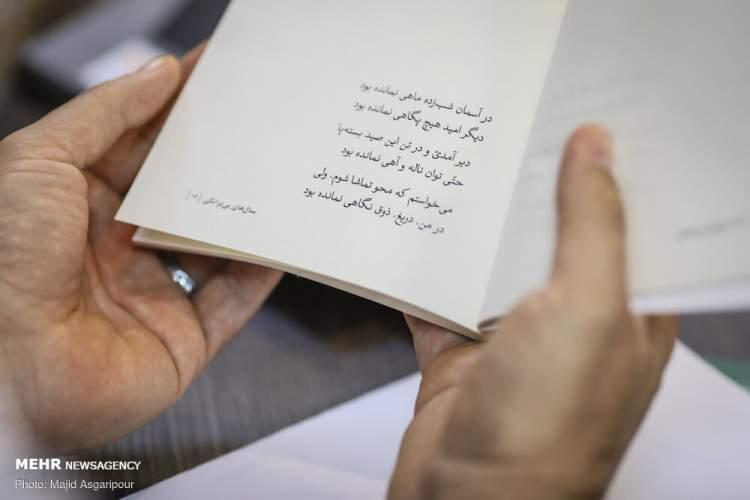 در آسمان شب‌زده ماهی نمانده بود
دیگر امید هیچ پگاهی نمانده بود
دیر آمدی و در تن این صید بسته‌پا
حتّی توان ناله و آهی نمانده بود
می‌خواستم که محو تماشا شوم، ولی
در من، دریغ، ذوق نگاهی نمانده بود
سال‌های بی‌ترانگی
MEHR NEWSAGENCY
Photo: Majid Asgaripour